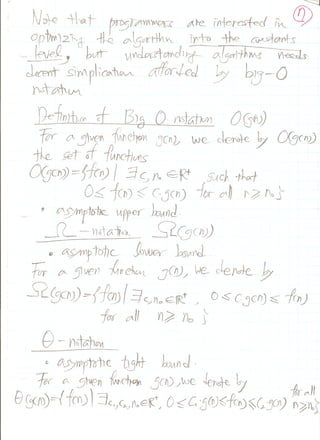 7
Note that programmers are interested in
optimizing the algorithm into the constants
level, but understanding algorithms needs
decent simplication afforded by big-O
notation
Definition of Big O notation O(g(n))
For a given function g(n), we denote by O(g(n))
the set of functions
O(g(n))={f(n)| ∃c,n₀∈R⁺ such that
0≤f(n)≤c·g(n) for all n≥n₀}
• asymptotic upper bound.
Ω-notation Ω(g(n))
• asymptotic lower bound
For a given function g(n), we denote by
Ω(g(n))={f(n)| ∃c,n₀∈R⁺, 0≤c·g(n)≤f(n)
for all n≥n₀}
Θ-notation
• asymptotic tight bound.
For a given function g(n), we denote by
Θ(g(n))={f(n)| ∃c₁,c₂,n₀∈R⁺, 0≤C₁·g(n)≤f(n)≤C₂g(n) for all n≥n₀}